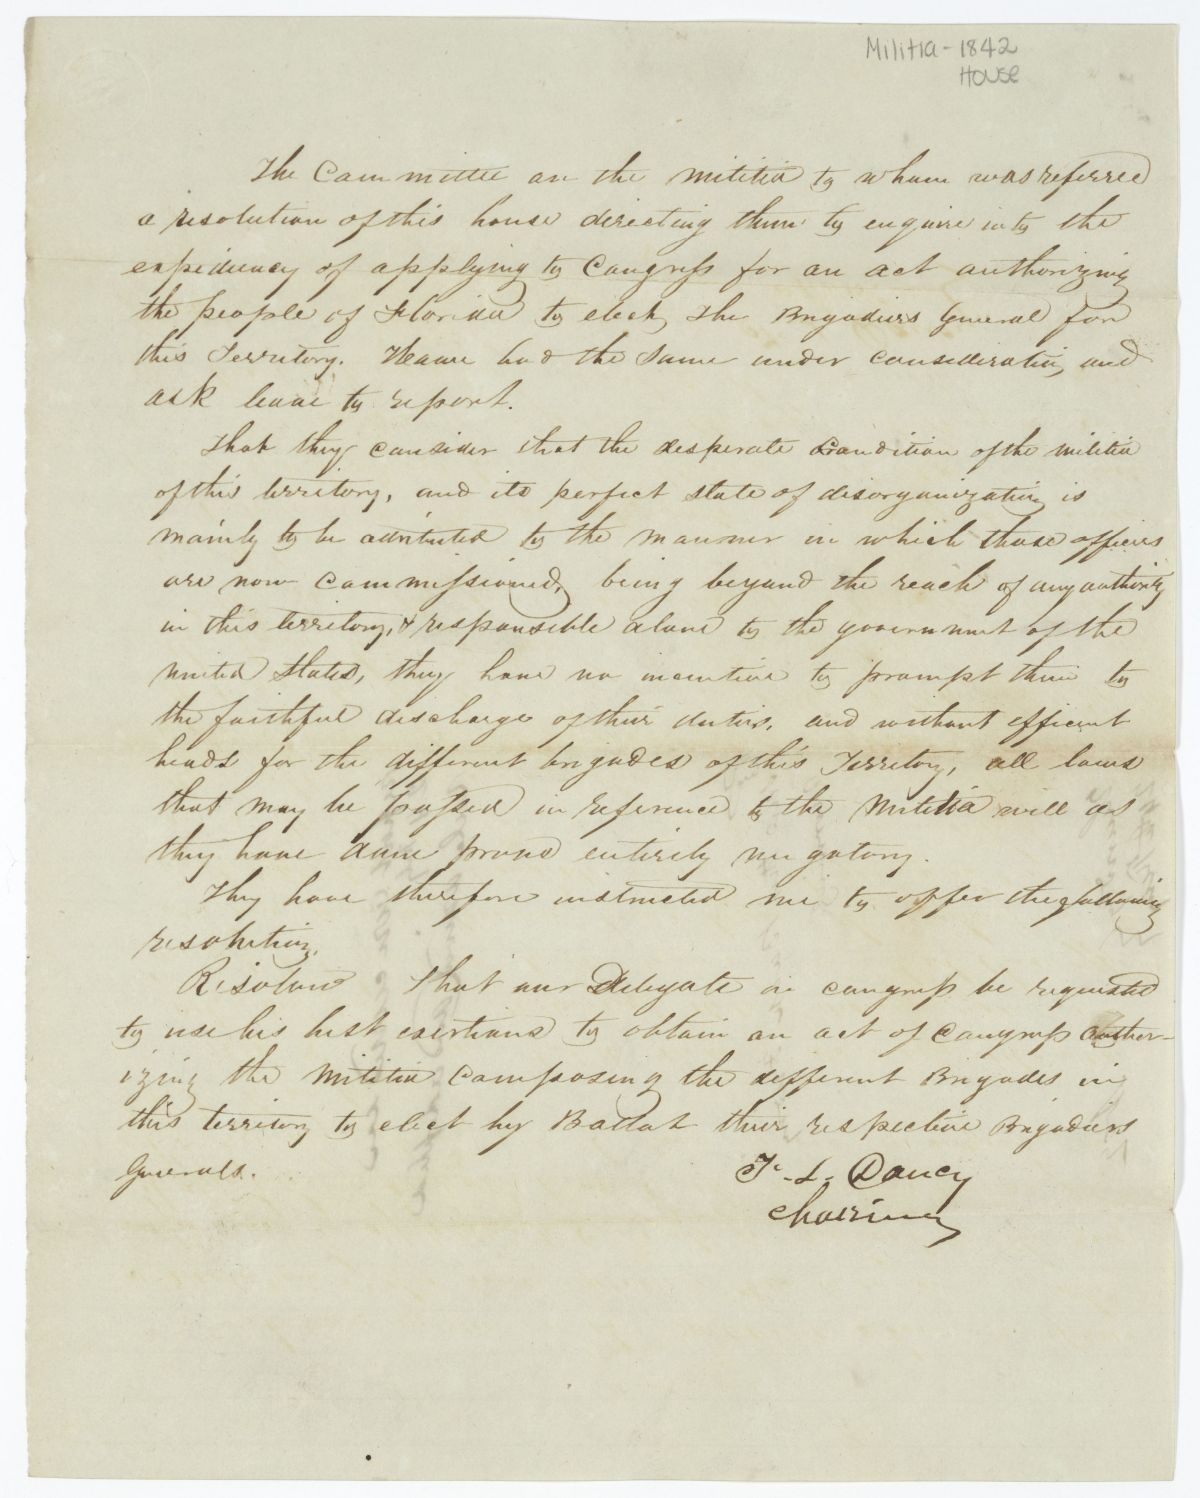 Militia - 1842
House
The Committee on the Militia to whom was referred
a resolution of this house directing them to enquire into the
expediency of applying to Congress for an act authorizing
the people of Florida to elect, the Brigadiers General for
this Territory. Have had the same under consideration, and
ask leave to report.
That they consider that the desperate Condition of the militia
of this territory, and its perfect state of disorganization is
mainly to be attributed to the manner in which those officers
are now commissioned, being beyond the reach of any authority
in this territory, & responsible alone to the government of the
united States, they have no incentive to prompt them to
the faithful discharge of their duties, and without efficient
heads for the different brigades of this Territory, all laws
that may be passed in reference to the Militia will as
they have done prove entirely nugatory.
They have therefore instructed me to offer the following
resolution,
Resolved That our Delegate in congress be requested
to use his best exertions to obtain an act of Congress author-
izing the Militia composing the different Brigades in
this territory to elect by Ballot their respective Brigadiers
Generals.
F. L. Dancy
Chairman